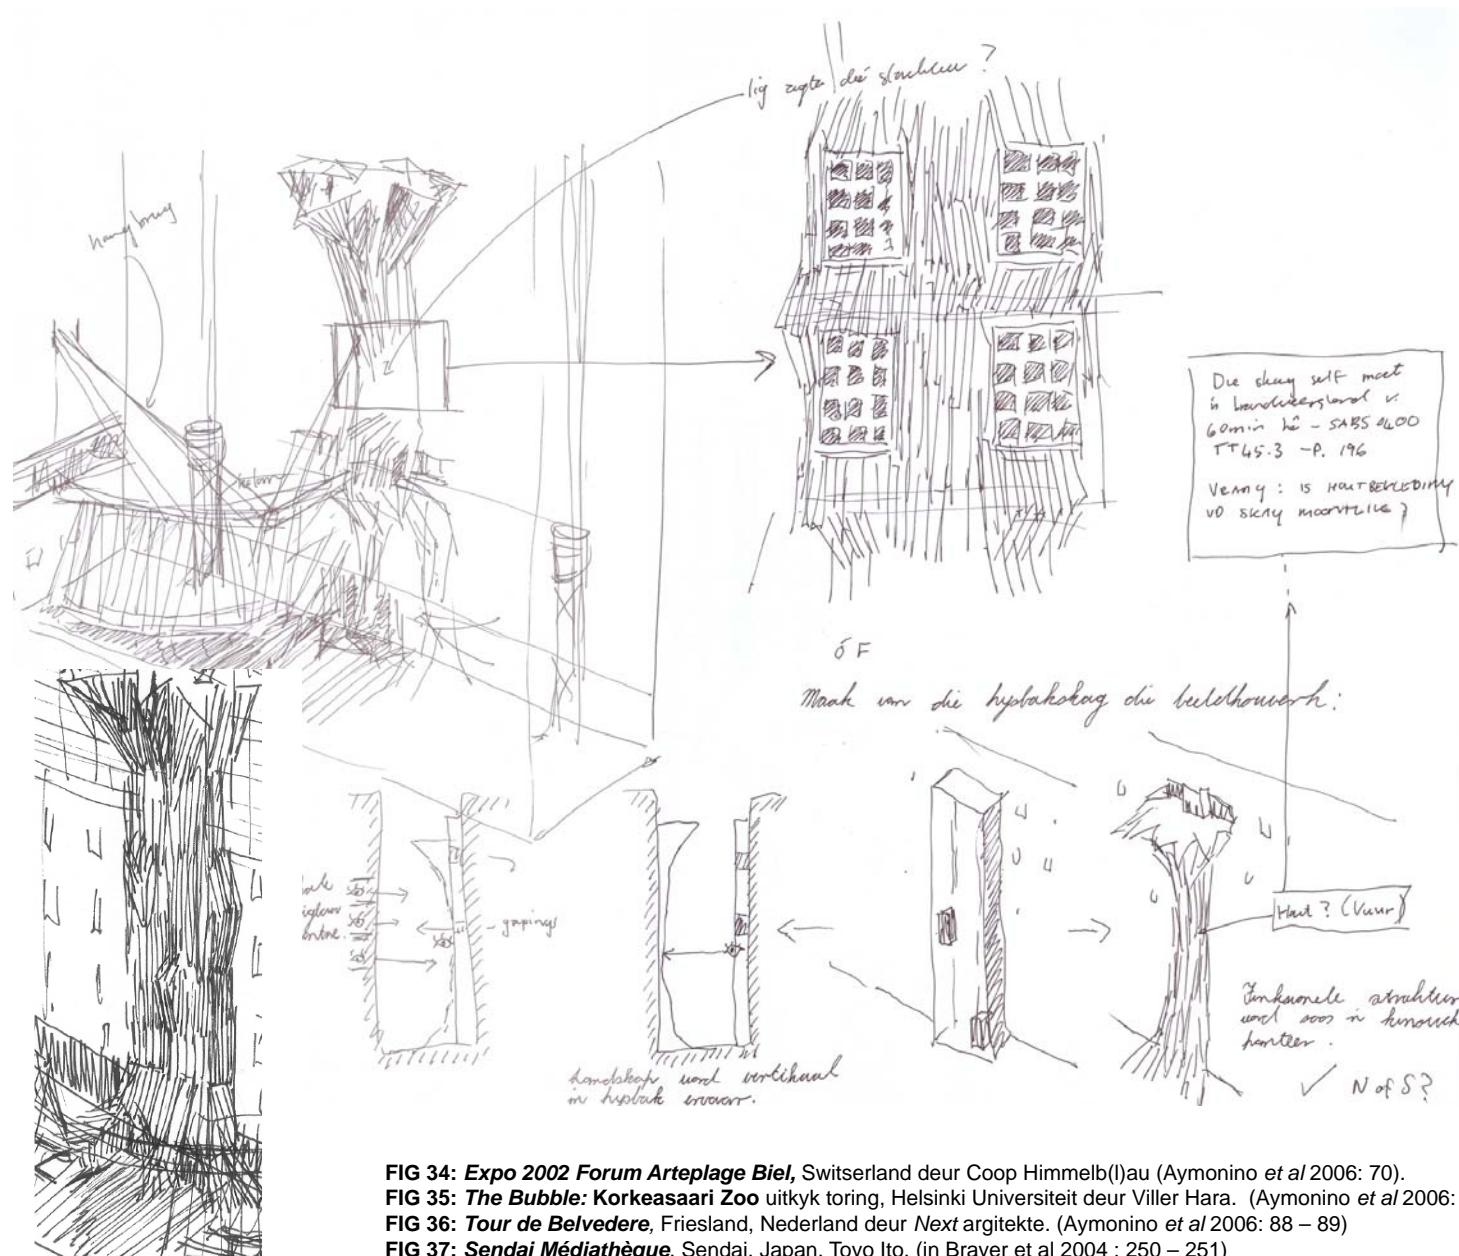 lig agter die slaghek?
hangbrug
Die skag self moet
'n brandweerstand v.
60min hê - SABS 0400
TT45.3 - P. 196
VRAAG : IS HOUTBEKLEDING
VD SKAG MOONTLIKE ?
ÓF
Maak van die hysbakskag die beeldhouwerk:
gapings
Hout? (Vuur)
landskap word vertikaal
in hysbak ervaar.
Funksionele struktuur
word soos 'n
hanteer.
N of S?
FIG 34: Expo 2002 Forum Arteplage Biel, Switserland deur Coop Himmelb(l)au (Aymonino et al 2006: 70).
FIG 35: The Bubble: Korkeasaari Zoo uitkyk toring, Helsinki Universiteit deur Viller Hara. (Aymonino et al 2006:
FIG 36: Tour de Belvedere, Friesland, Nederland deur Next argitekte. (Aymonino et al 2006: 88 – 89)
FIG 37: Sendai Médiathèque, Sendai, Japan, Toyo Ito. (in Brayer et al 2004 : 250 – 251)